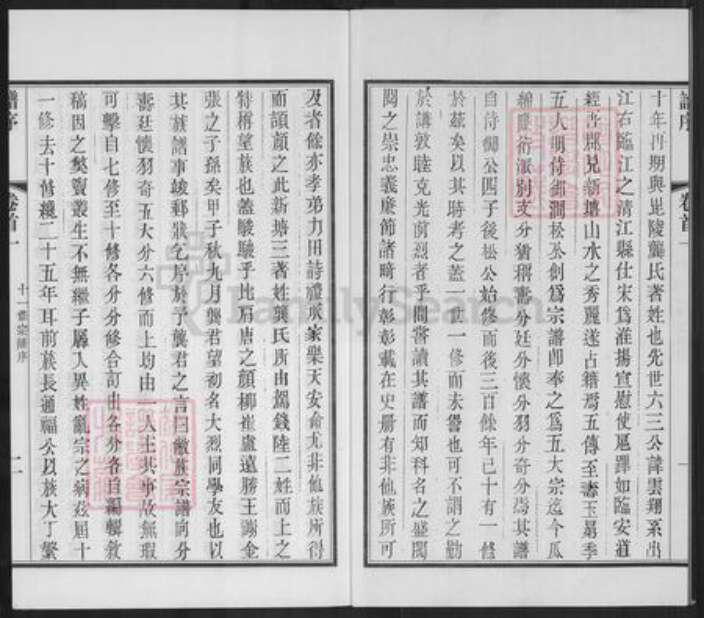 譜序 卷首 一
十年再期與毘陵龔氏著姓也先世六三公諱雲翔系出
江右臨江之清江縣仕宋爲淮揚宣慰使扈蹕如臨安道
經晉陵見新塘山水之秀麗遂占籍焉五傳至壽玉易季
五大明侍御澗松公創爲宗譜即奉之爲五大宗迄今瓜
綿 衍派別支分猶捐壽分廷分懷分羽分奇分爲其譜
自侍御公四子後松公始修而後三百餘年已十有一修
於茲矣以其時考之蓋一世一修而未嘗也可不謂之勤
於講敦睦克光前烈者乎間嘗讀其譜而知科名之盛閥
閱之崇忠義廉節諸畸行彰彰載在史册有非他族所可
及者餘亦孝弟力田詩禮承家樂天安命尤非他族所得
而頡頏之此新塘三著姓龔氏所由駕錢陸二姓而上之
特稱望族也蓋駸駸乎比肩唐之顏柳崔盧遠勝王謝金
張之子孫矣甲子秋九月龔君望初名大烈同學友也以
其族譜事竣郵狀乞序於予龔君之言曰敝族宗譜向分
壽廷懷羽奇五大分六修而上均由一人主其事故無瑕
可擊自七修至十修各分分修合訂由各分各自編輯敘
稿因之獎竇叢生不無繼子羼入異姓亂宗之病茲屆十
一修去十修纔二十五年耳前族長通福公以族大丁繁
譜序 卷首 一 十一葺宗譜序 二
FamilySearch